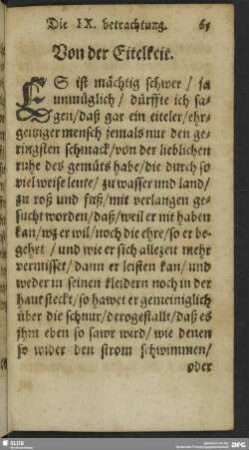 Die IX. betrachtung. 65
Von der Eitelkeit.
ES ist mächtig schwer / ja
unmüglich / dürffte ich sa-
gen/daß gar ein eiteler/ehr-
geitziger mensch jemals nur den ge-
ringsten schmack/von der lieblichen
ruhe des gemüts habe/die durch so
viel weise leute/ zu wasser und land/
zu roß und fuß/mit verlangen ge-
sucht worden/daß/weil er nit haben
kan/wz er wil/noch die ehre/so er be-
gehrt / und wie er sich allezeit mehr
vermisset/dann er leisten kan/und
weder in seinen kleidern noch in der
haut steckt/so hawet er gemeiniglich
über die schnur/derogestalt/daß es
jhm eben so sawr wird/wie denen
so wider den strom schwimmen/
oder
SLUB